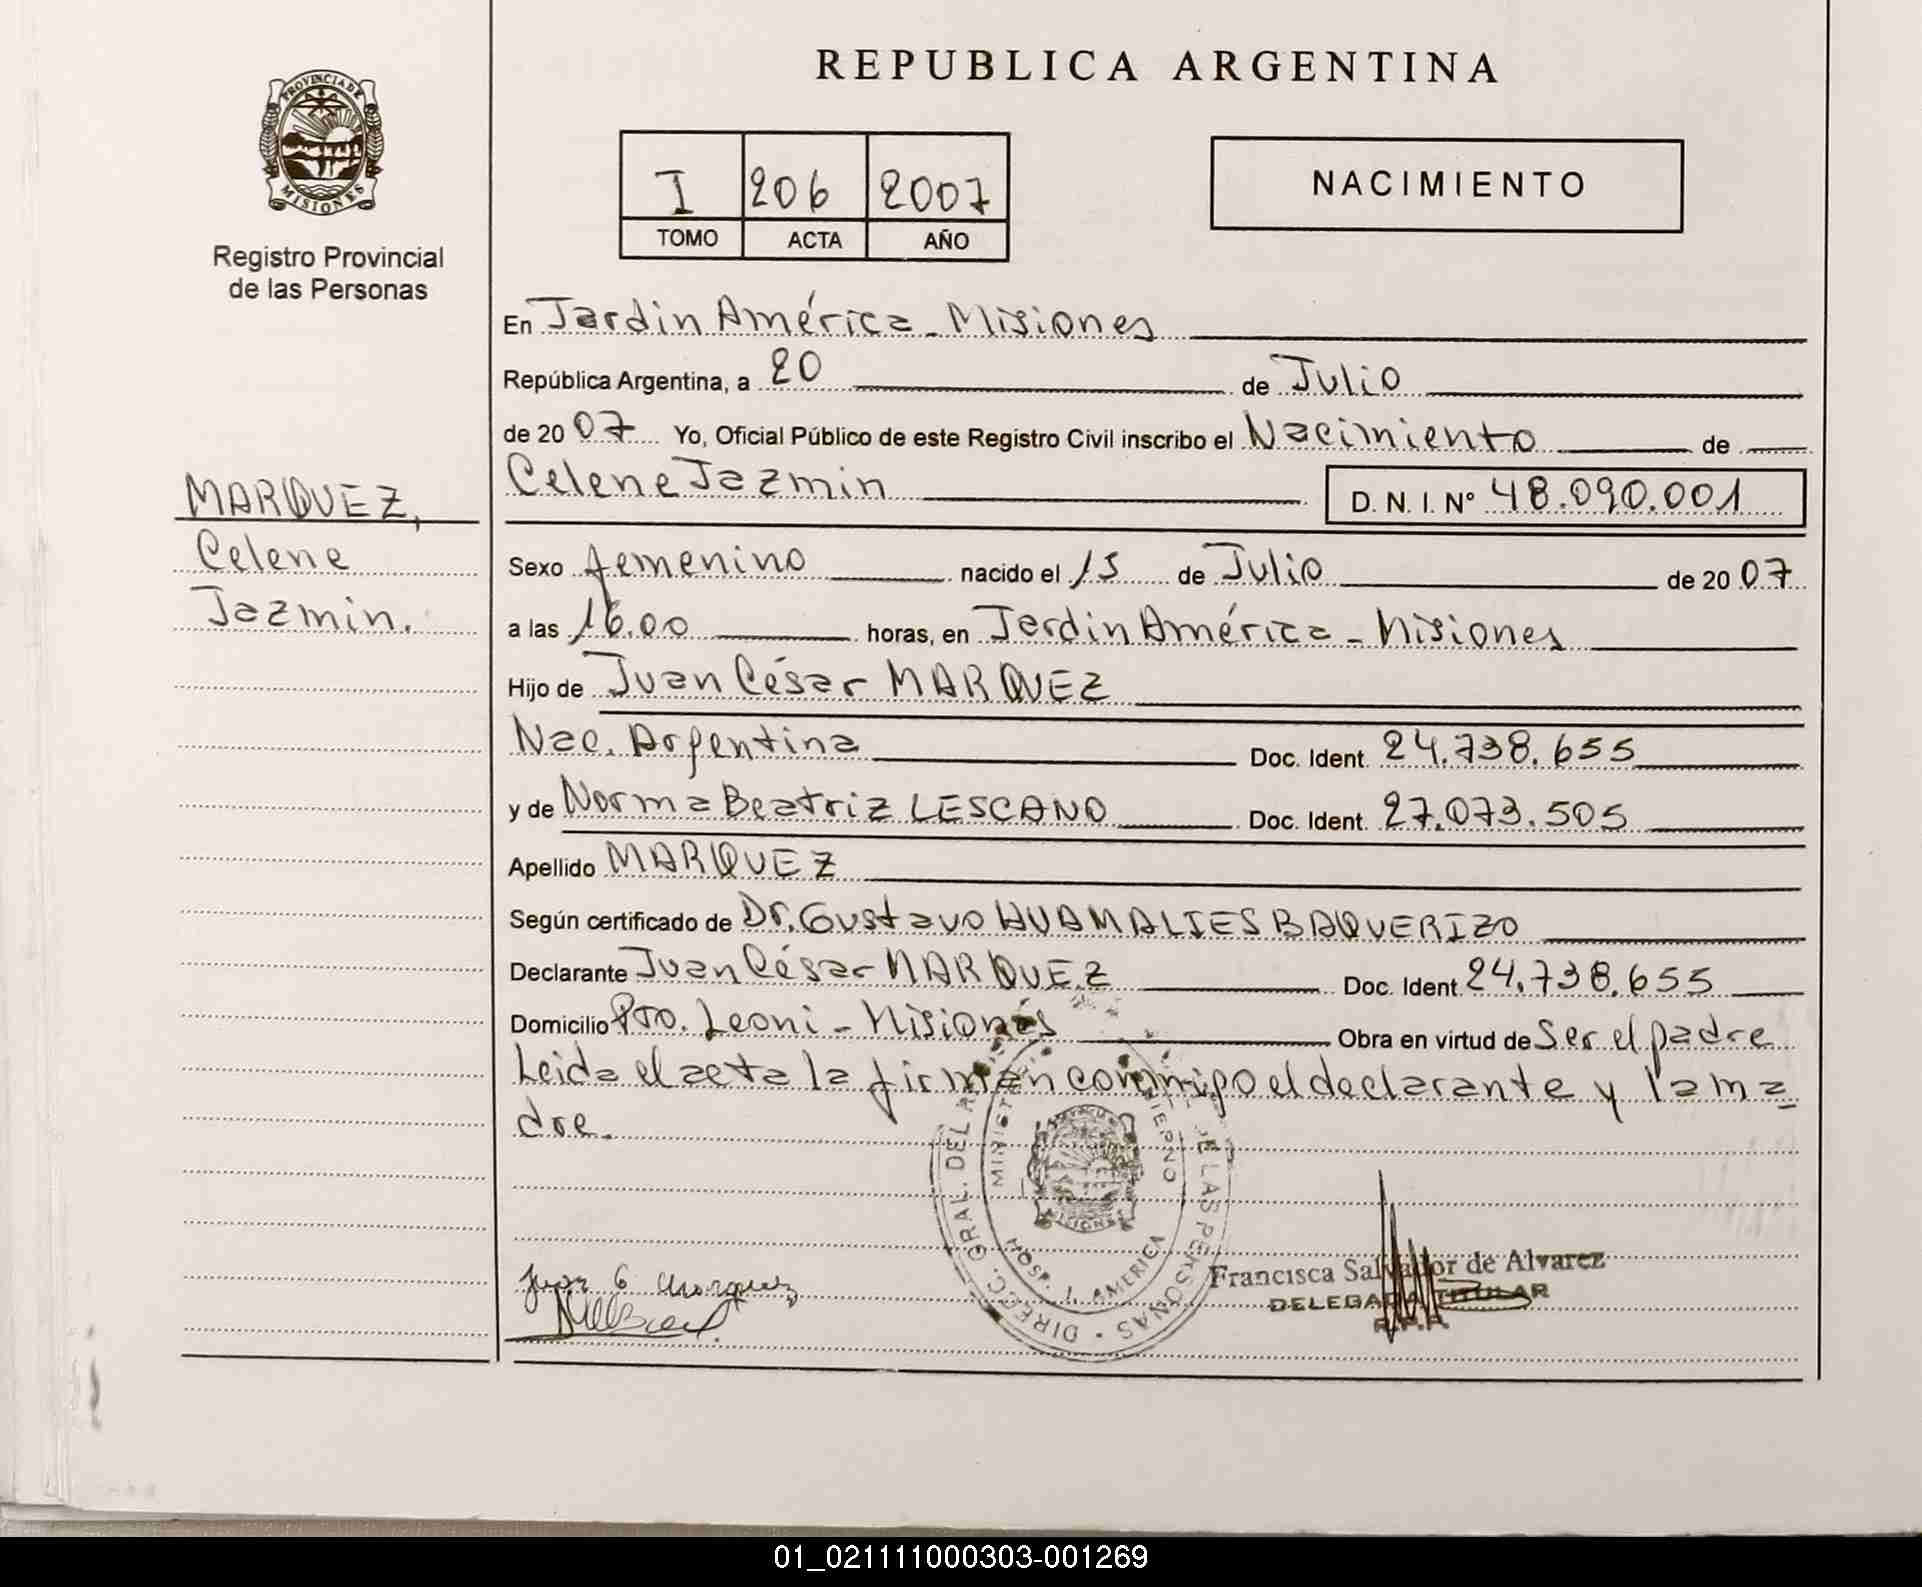 REPUBLICA ARGENTINA
PROVINCIA DE
MISIONES
Registro Provincial
de las Personas
I 206 2007
TOMO ACTA AÑO
NACIMIENTO
MARQUEZ,
Celene
Jazmin.
En Jardin América - Misiones
República Argentina, a 20 de Julio
de 20 07 Yo, Oficial Público de este Registro Civil inscribo el Nacimiento de
Celene Jazmin D. N. I. Nº 48.090.001
Sexo femenino nacido el 15 de Julio de 20 07
a las 16.00 horas, en Jardin América - Misiones
Hijo de Juan César MARQUEZ
Nac. Argentina Doc. Ident. 24.738.655
y de Norma Beatriz LESCANO Doc. Ident. 27.073.505
Apellido MARQUEZ
Según certificado de Dr. Gustavo HUAMALIES BAQUERIZO
Declarante Juan César MARQUEZ Doc. Ident. 24.738.655
Domicilio Pto. Leoni - Misiones Obra en virtud de Ser el padre
Leida el acta la firman conmigo el declarante y la ma
dre.
DIRECC. GRAL. DEL DE LAS PERSONAS
HOSP. J. AMERICA
Juan C Marquez
Francisca Salvador de Alvarez
DELEGADA TITULAR
R.P.P.
01_021111000303-001269